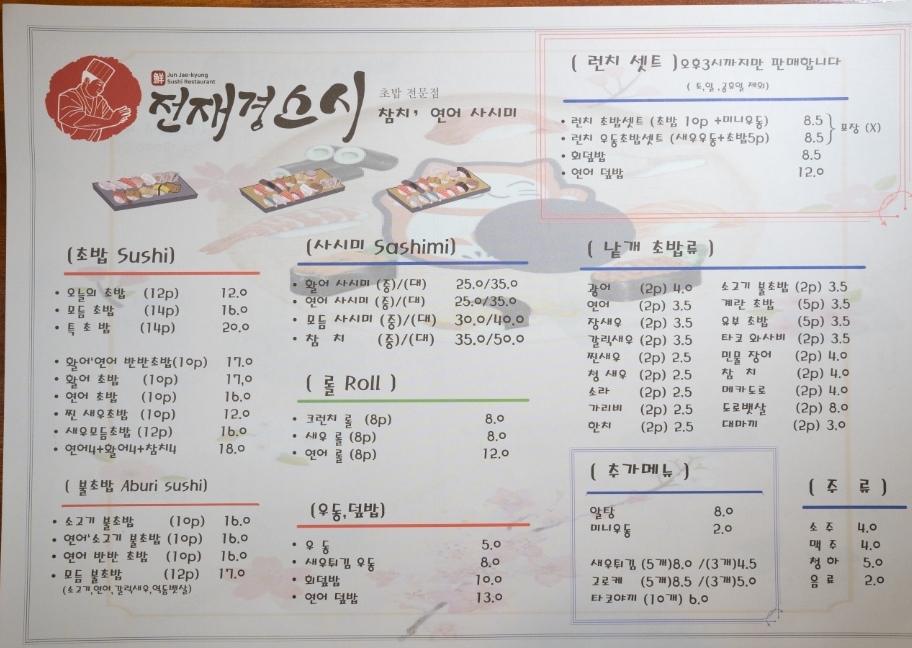 鮮 Jun Jae-kyung
Sushi Restaurant
전재경스시
초밥 전문점
참치, 연어 사시미
( 런치 셋트 )오후3시까지만 판매합니다
( 토,일,공휴일 제외)
• 런치 초밥셋트 (초밥 10p +미니우동) 8.5
• 런치 우동초밥셋트 (새우우동+초밥5p) 8.5
포장 (X)
• 회덮밥 8.5
• 연어 덮밥 12.0
(초밥 Sushi)
• 오늘의 초밥 (12p) 12.0
• 모듬 초밥 (14p) 16.0
• 특 초밥 (14p) 20.0
• 활어'연어 반반초밥(10p) 17.0
• 활어 초밥 (10p) 17.0
• 연어 초밥 (10p) 16.0
• 찐 새우초밥 (10p) 12.0
• 새우모듬초밥 (12p) 16.0
• 연어4+활어4+참치4 18.0
( 불초밥 Aburi sushi)
• 소고기 불초밥 (10p) 16.0
• 연어'소고기 불초밥 (10p) 16.0
• 연어 반반 초밥 (10p) 16.0
• 모듬 불초밥 (12p) 17.0
(소고기,연어,갈릭새우,역돔뱃살)
(사시미 Sashimi)
• 활어 사시미 (중)/(대) 25.0/35.0
• 연어 사시미 (중)/(대) 25.0/35.0
• 모듬 사시미 (중)/(대) 30.0/40.0
• 참 치 (중)/(대) 35.0/50.0
( 롤 Roll )
• 크런치 롤 (8p) 8.0
• 새우 롤 (8p) 8.0
• 연어 롤 (8p) 12.0
(우동,덮밥)
• 우 동 5.0
• 새우튀김 우동 8.0
• 회덮밥 10.0
• 연어 덮밥 13.0
( 낱개 초밥류 )
광어 (2p) 4.0
연어 (2p) 3.5
장새우 (2p) 3.5
갈릭새우 (2p) 3.5
찐새우 (2p) 2.5
청 새우 (2p) 2.5
소라 (2p) 2.5
가리비 (2p) 2.5
한치 (2p) 2.5
소고기 불초밥 (2p) 3.5
계란 초밥 (5p) 3.5
유부 초밥 (5p) 3.5
타코 와사비 (2p) 3.5
민물 장어 (2p) 4.0
참 치 (2p) 4.0
메카도로 (2p) 4.0
도로뱃살 (2p) 8.0
대마끼 (2p) 3.0
( 추가메뉴 )
알탕 8.0
미니우동 2.0
새우튀김 (5개)8.0 /(3개)4.5
고로케 (5개)8.5 /(3개)5.0
타코야끼 (10개) 6.0
( 주 류 )
소 주 4.0
맥 주 4.0
청 하 5.0
음 료 2.0